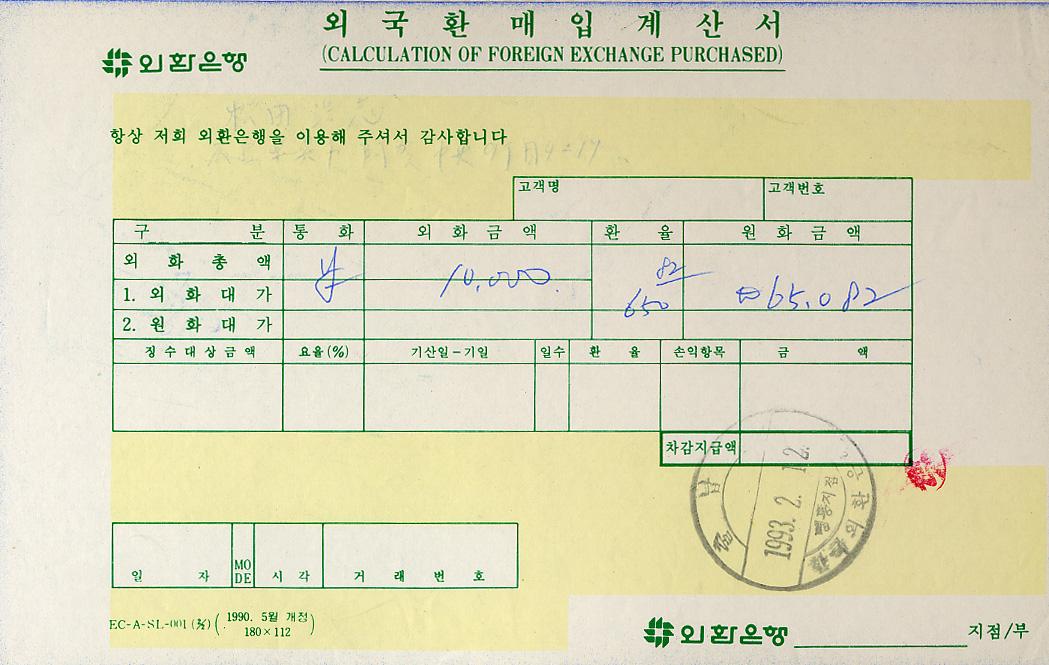 외국환매입계산서
외환은행 (CALCULATION OF FOREIGN EXCHANGE PURCHASED)
항상 저희 외환은행을 이용해 주셔서 감사합니다
고객명 고객번호
구 분 통 화 외 화 금 액 환 율 원 화 금 액
외 화 총 액
1. 외 화 대 가 ¥ 10,000. 650 82 ₩65,082
2. 원 화 대 가
징수대상금액 요율(%) 기산일-기일 일수 환 율 손익항목 금 액
차감지급액
1993. 2. 12.
일 자 MODE 시 각 거 래 번 호
EC-A-SL-001 (½) (1990. 5월 개정 180×112)
외환은행 지점/부